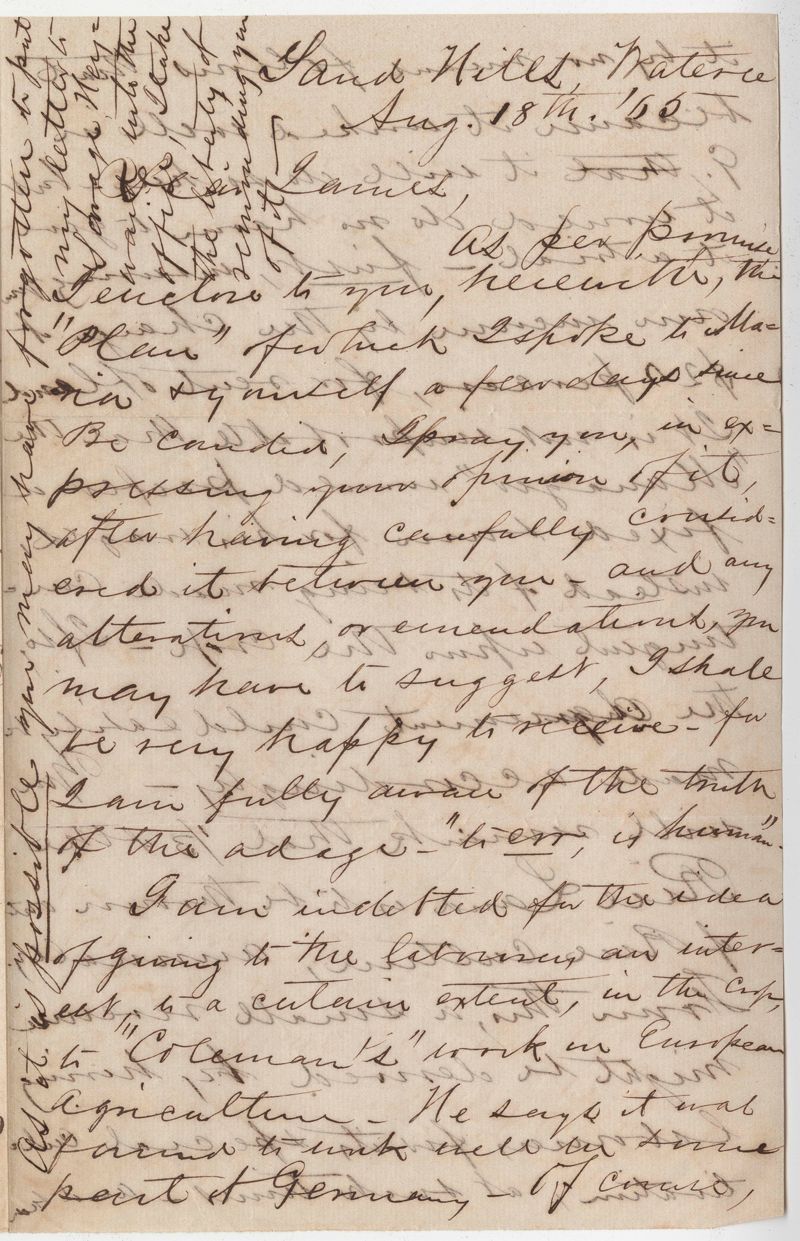 Sand Hills, Wateree
Aug. 18th. '65
Dear James,
As per promise
I enclose to you, herewith, the
"Plan" of which I spoke to Ma=
ria & yourself a few days since
Be candid, I pray you, in ex=
pressing your opinion of it,
after having carefully consid=
ered it between you - and any
alterations, or emendations, you
may have to suggest, I shall
be very happy to receive - for
I am fully aware of the truth
of the adage - "to err, is human" -
I am indebted for the idea
of giving to the labourers, an inter=
est, to a certain extent, in the crop,
to "Coleman's" work on European
Agriculture - He says it was
found to work well in some
part of Germany - Of course,
As it is possible you may have forgotten to put
my letter to
Savage Hey-
ward into the
office, I take
the liberty of
reminding you
of it -